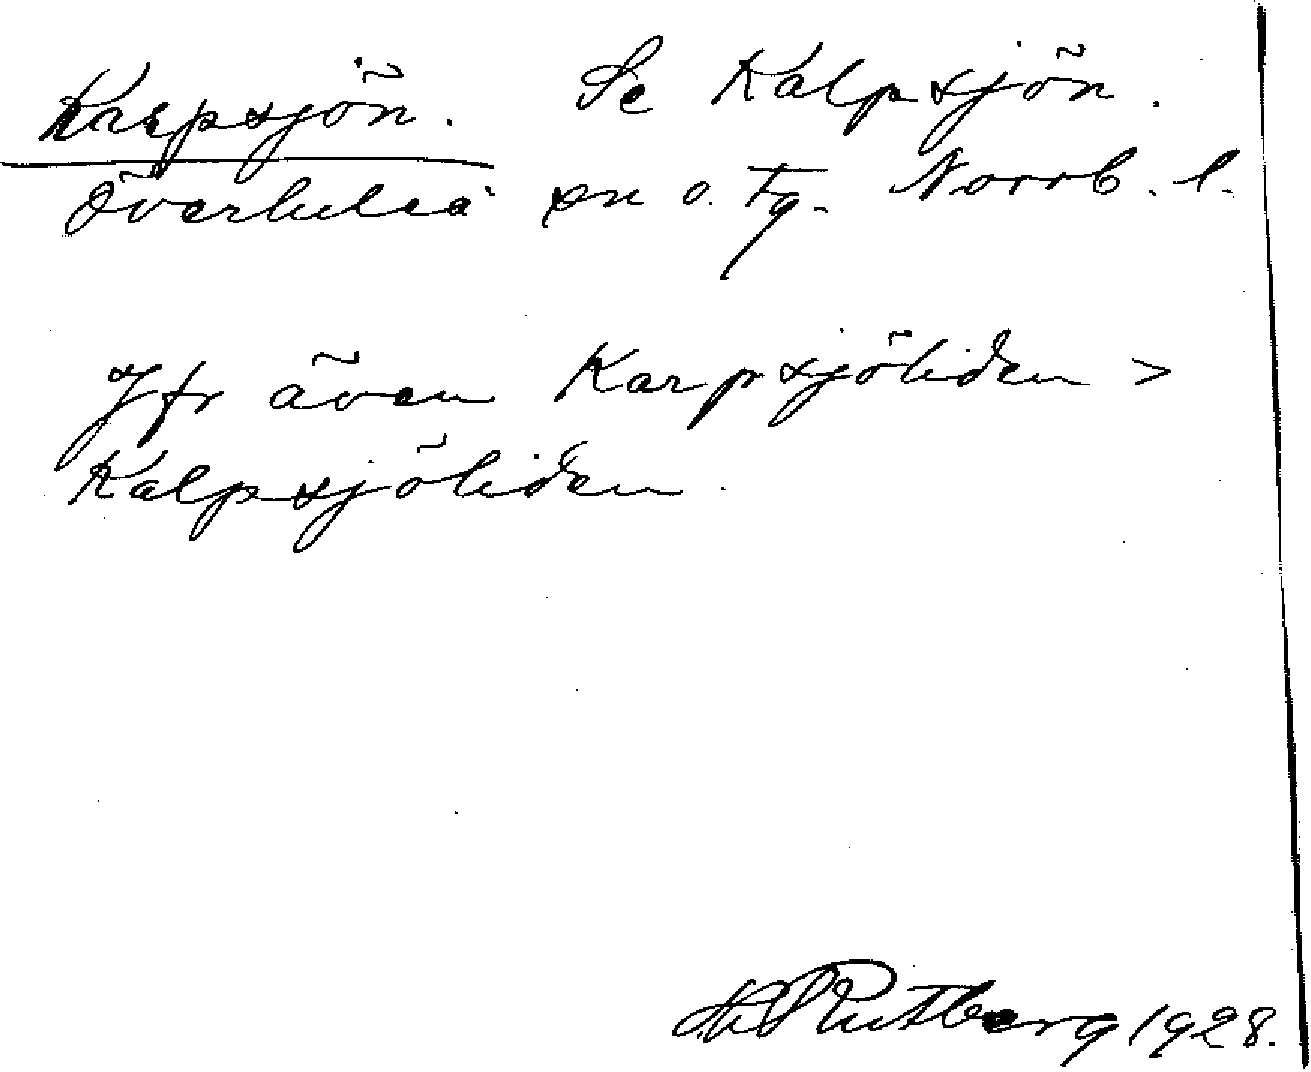 Krepsjön. Se Kalpsjön.
Överluleå sn o. tg. Norrb. l.
Jfr även Karpsjöliden >
Kalpsjöliden.
Rutberg 1928.